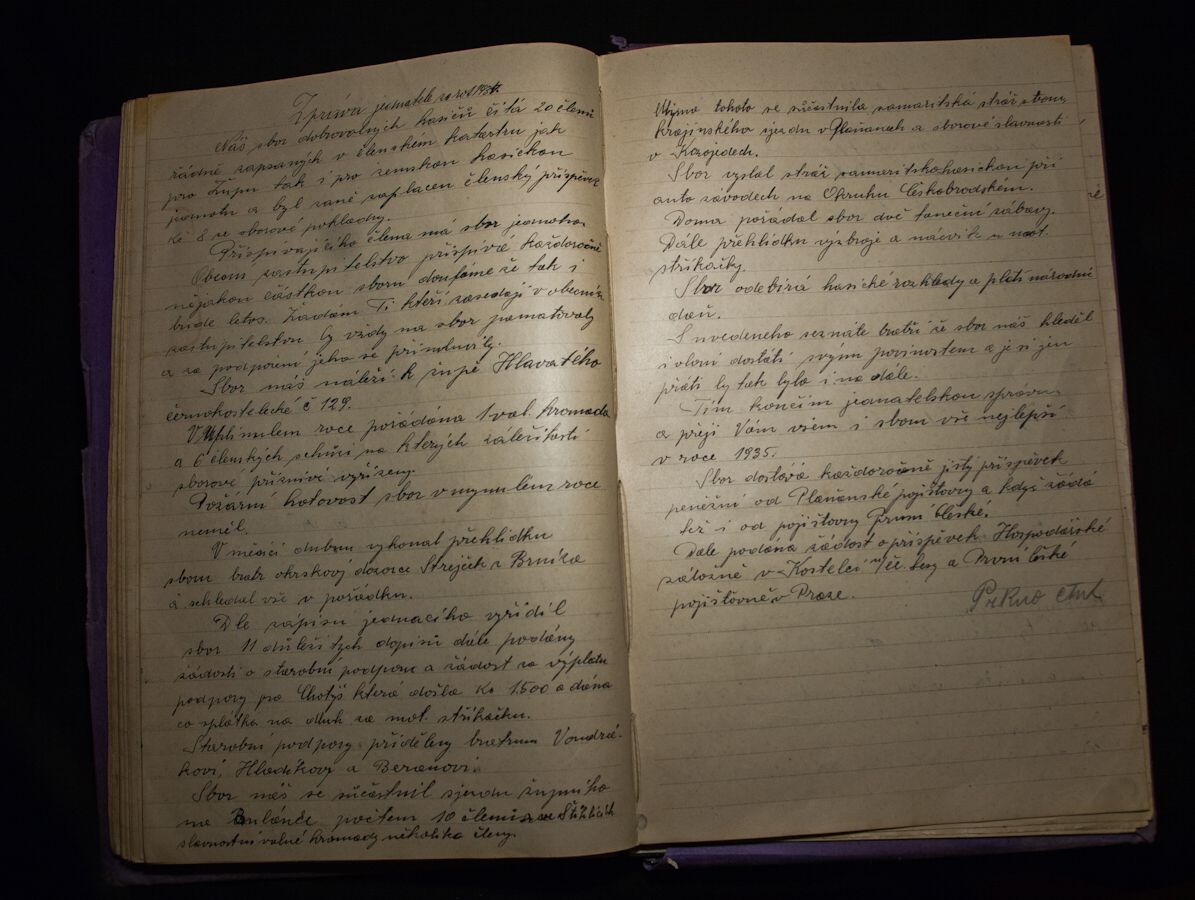 Zpráva jednatele za rok 1934
Náš sbor dobrovolných hasičů čítá 20 členů
řádně zapsaných v členském katastru jak
pro župu tak i pro zemskou hasičkou
jednotu a byl řáně zaplacen členský příspěvek
Kč 8 ze sborové pokladny.
Přispívajícího člena má sbor jednoho.
Obecní zastupitelstvo přispívá každoročně
nějakou částkou sboru doufáme že tak i
bude letos. Žádám Ti kteří zasedají v obecním
zastupitelstvu by vždy na sbor pamatovaly
a za podpoření jeho se přimluvily.
Sbor náš náleží k župě Hlavatého
černokostelecké č 129.
V uplinulem roce pořádána 1 val. hromada
a 6 členských schůzí na kterých záležitosti
sborové příznivě vyřízeny.
Požární hotovost sbor v minulem roce
neměl.
V měsíci dubnu vykonal přehlídku
sboru bratr okrskový dozorce Strejček z Brníka
a schledal vše v pořádku.
Dle zapisu jednacího vyřídil
sbor 11 důležitych dopisů dále podány
žádosti o starobní podporu a žádost za výplatu
podpory pro Chotýš která došla Kč 1.500 a dána
co splátka na dluh za mot. stříkačku.
Starobní podpory přiděleny bratrum Vondrá-
kovi, Hladíkovy a Beranovi.
Sbor náš se súčastnil sjezdu župního
na Bulánce počtem 10 členů a ve Štíhlicích
slavnostní valné hromady několika členy.
Mymo tohoto se súčastnila samaritská stráž sboru
Krajinského sjezdu v Plaňanech a sborové slavnosti
v Kozojedech.
Sbor vyslal stráž samaritskohasickou při
auto závodech na Okruhu Českobrodském.
Doma pořádal sbor dvě taneční zábavy.
Dále přehlídku výzbroje a nácvik u mot.
stříkačky.
Sbor odebírá hasické rozhledy a platí národní
daň.
S uvedeneho seznáte bratři že sbor náš hleděl
i vloni dostáti svým povinostem a je si jen
přáti by tak bylo i na dále.
Tím končím jednatelskou zprávu
a přeji Vám všem i sboru vše nejlepší
v roce 1935.
Sbor dostává každoročně jistý příspěvek
peněžní od Plaňanské pojišťovny a když žádá
též i od pojišťovny První České.
Dále podána žádost o příspěvek Hospodářské
záložně v Kostelci n/ Čč. lesy a První české
pojišťovně v Praze.